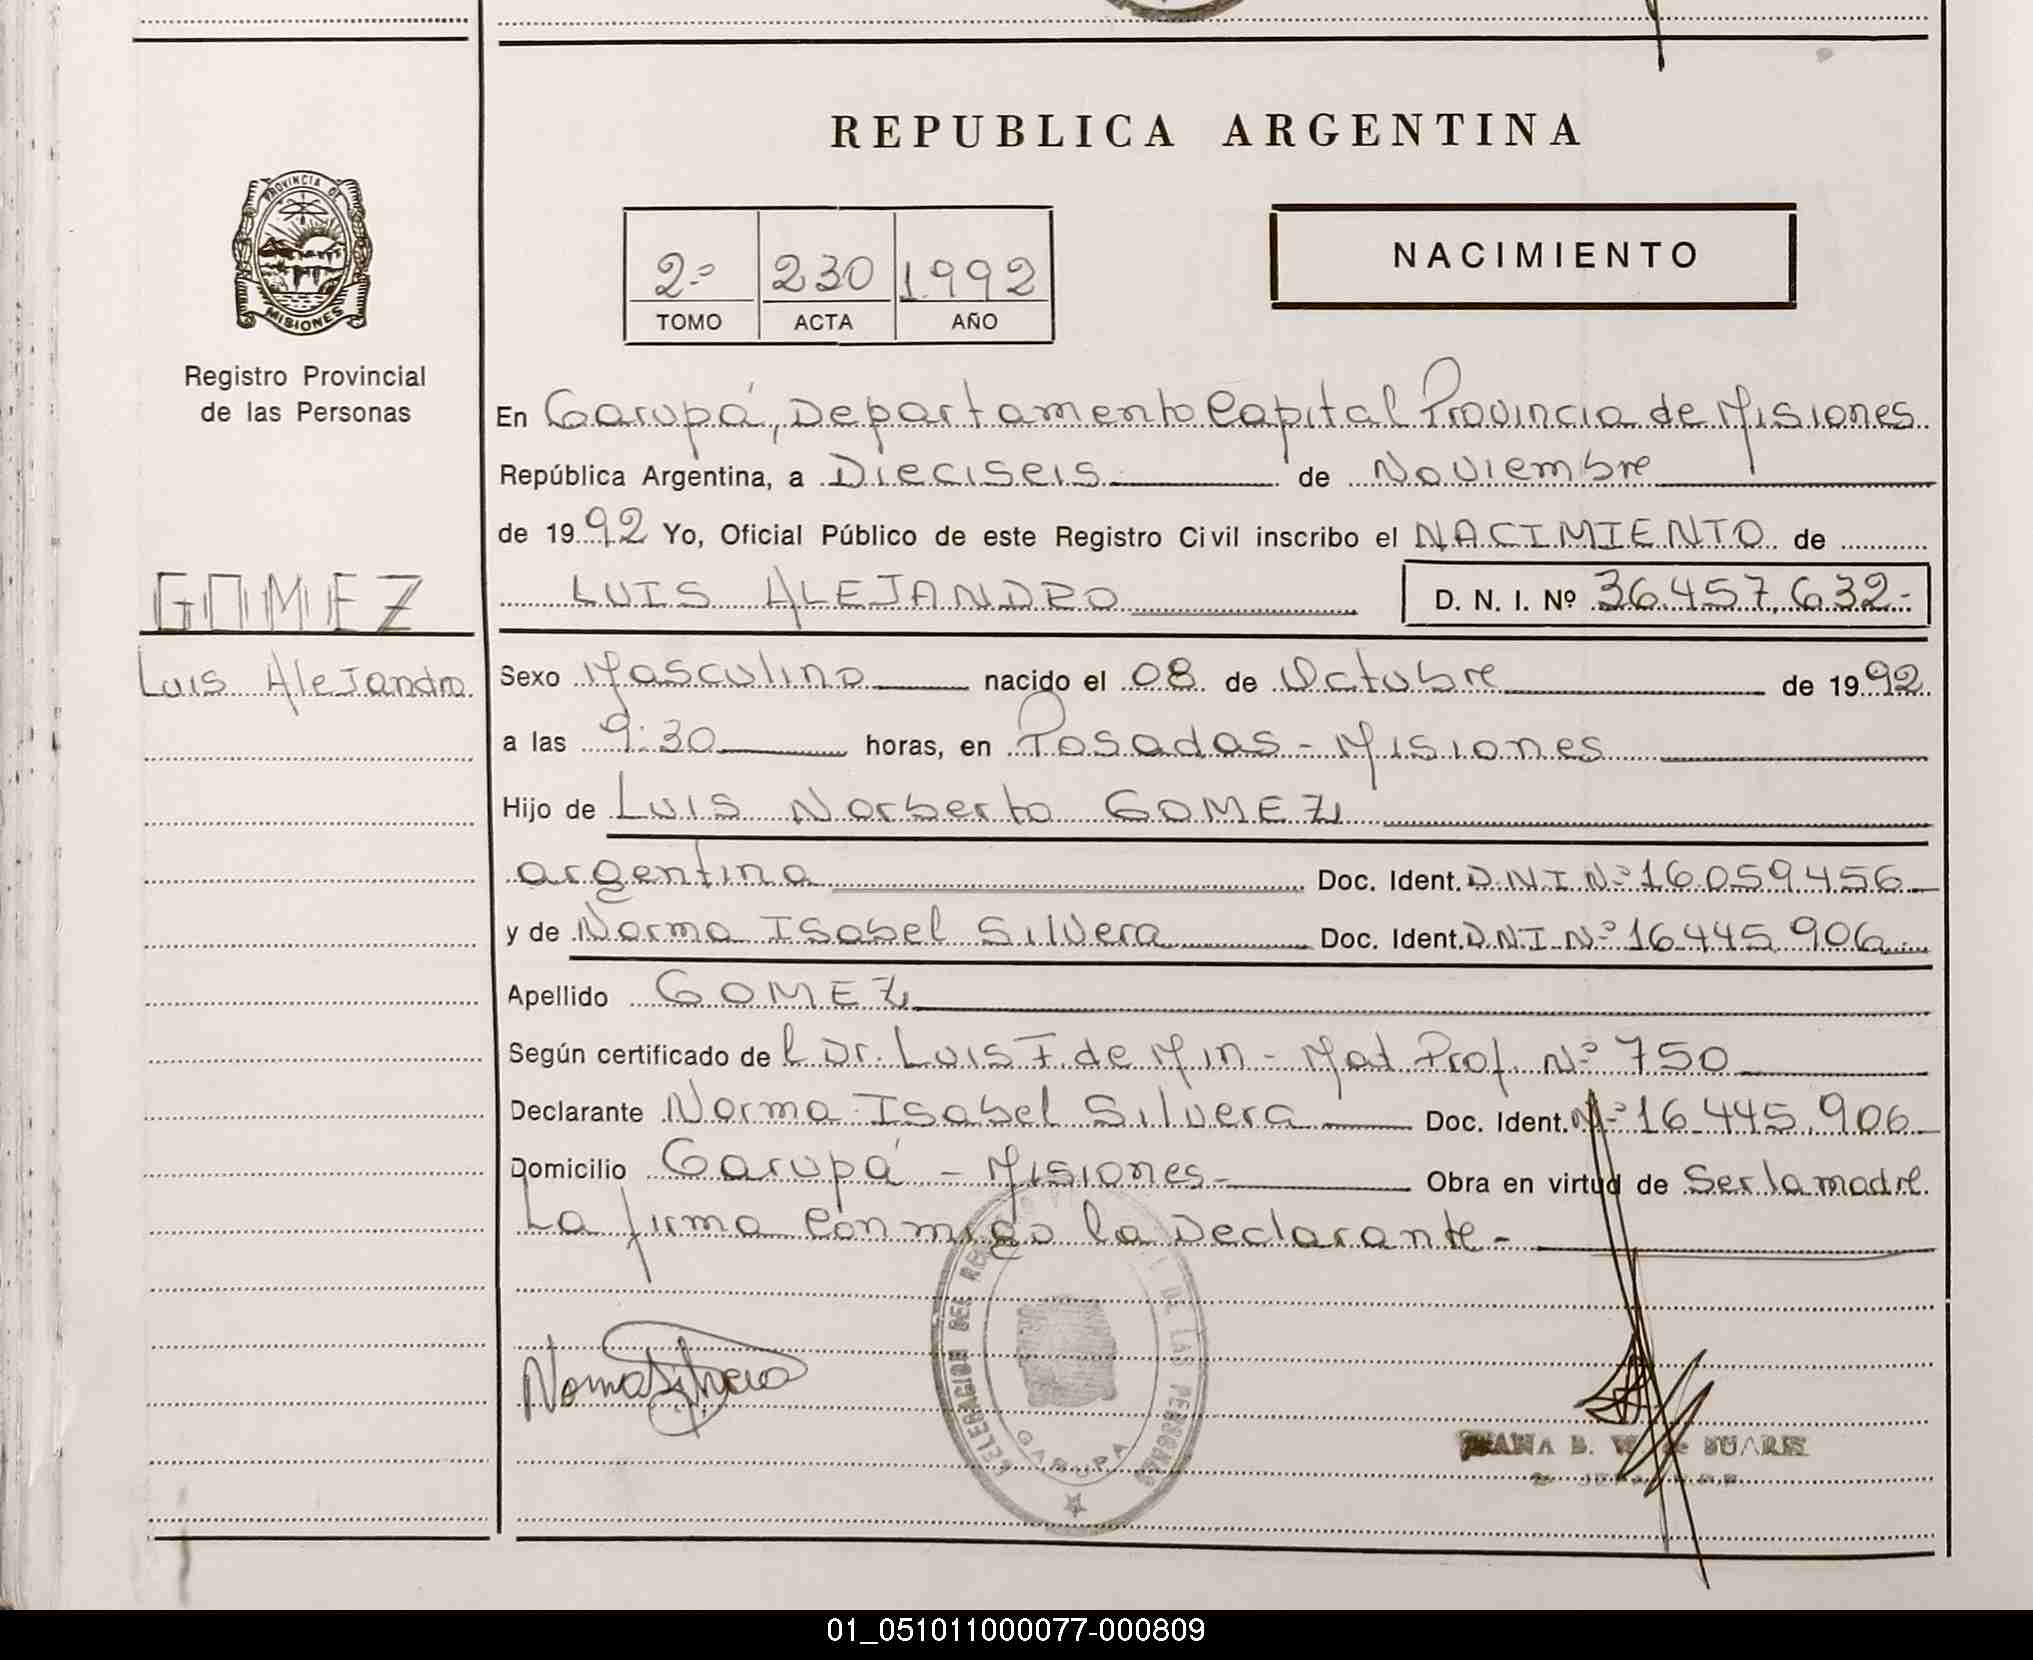 REPUBLICA ARGENTINA
PROVINCIA DE
MISIONES
Registro Provincial
de las Personas
GOMEZ
Luis Alejandro
2º 230 1992
TOMO ACTA AÑO
NACIMIENTO
En Garupá, Departamento Capital Provincia de Misiones
República Argentina, a Dieciseis de Noviembre
de 1992 Yo, Oficial Público de este Registro Civil inscribo el NACIMIENTO de
LUIS ALEJANDRO D. N. I. Nº 36.457.632-
Sexo Masculino nacido el 08 de Octubre de 1992
a las 9:30 horas, en Posadas - Misiones
Hijo de Luis Norberto GOMEZ
argentina Doc. Ident. DNI Nº 16059456
y de Norma Isabel Silvera Doc. Ident. D.N.I Nº 16.445.906
Apellido GOMEZ
Según certificado de l Dr. Luis F. de Min - Mat. Prof. Nº 750
Declarante Norma Isabel Silvera Doc. Ident. Nº 16.445.906
Domicilio Garupá - Misiones - Obra en virtud de Ser la madre
La firma conmigo la Declarante -
Norma Silvera
DE LAS PERSONAS
GARUPA
01_051011000077-000809